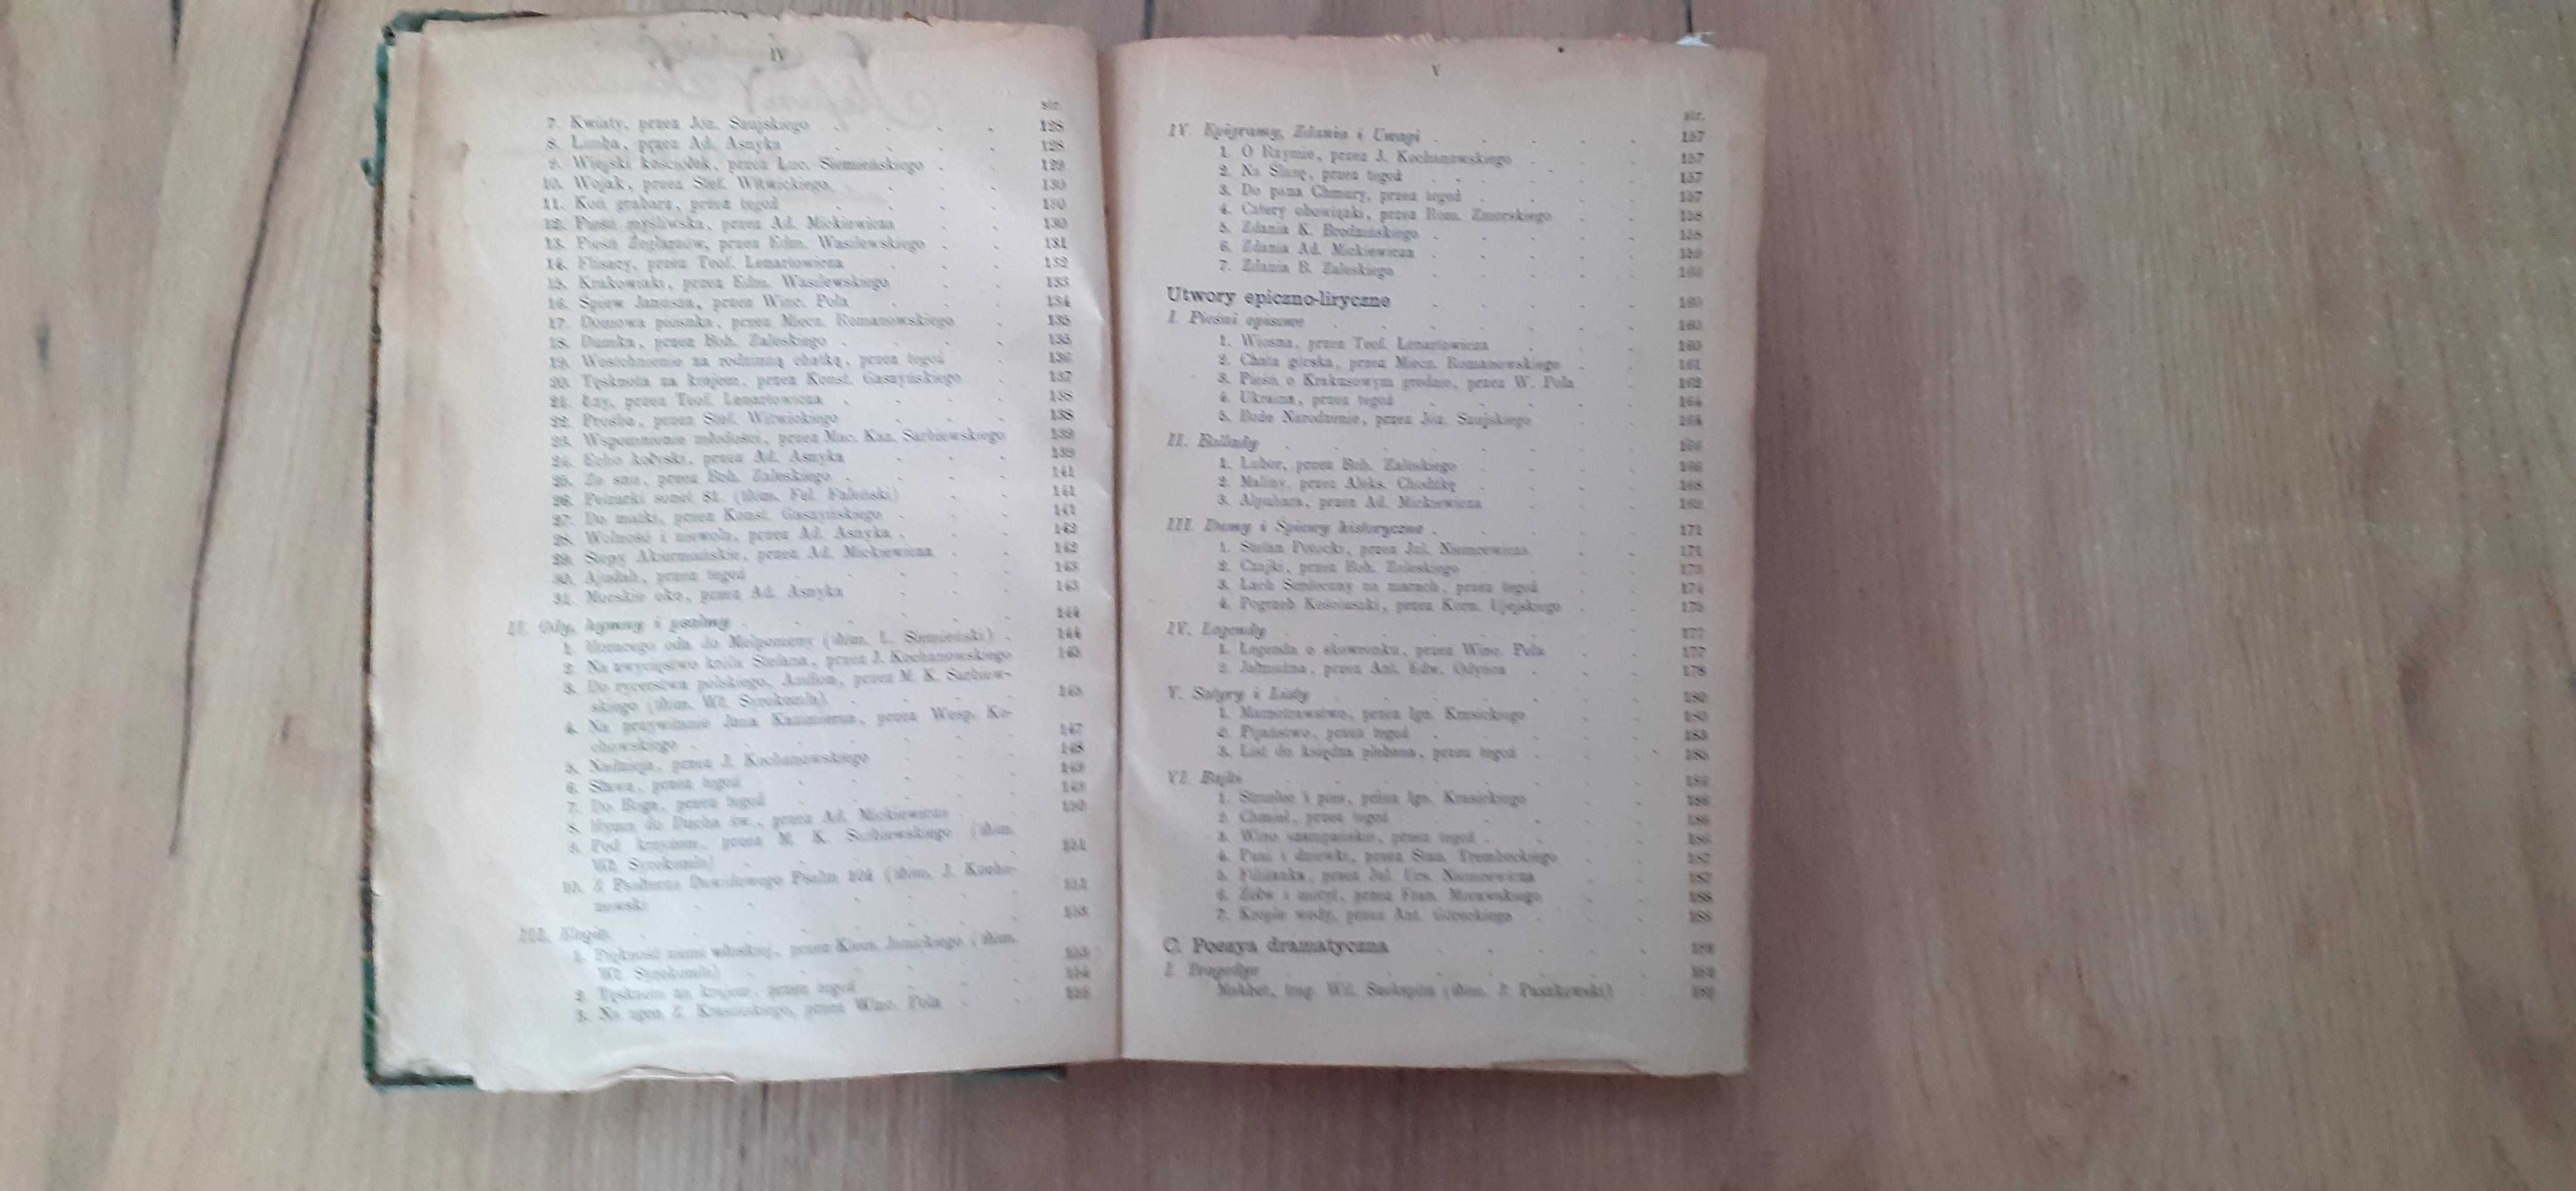 IV
str.
7. Kwiaty, przez Józ. Szujskiego . . . . 128
8. Limba, przez Ad. Asnyka . . . . 128
9. Wiejski kościołek, przez Luc. Siemieńskiego . . 129
10. Wojak, przez Stef. Witwickiego, . . . 130
11. Koń grabarz, przez tegoż . . . . 130
12. Pieśń myśliwska, przez Ad. Mickiewicza . . 130
13. Pieśń Żeglarzów, przez Edm. Wasilewskiego . . 131
14. Flisacy, przez Teof. Lenartowicza . . . 132
15. Krakowiaki, przez Edm. Wasilewskiego . . 133
16. Śpiew Janusza, przez Winc. Pola . . . 134
17. Domowa piosnka, przez Miecz. Romanowskiego . 135
18. Dumka, przez Boh. Zaleskiego . . . . 135
19. Westchnienie za rodzinną chatką, przez tegoż . 136
20. Tęsknota za krajem, przez Konst. Gaszyńskiego . 137
21. Łzy, przez Teof. Lenartowicza . . . . 138
22. Prośba, przez Stef. Witwickiego . . . 138
23. Wspomnienie młodości, przez Mac. Kaz. Sarbiewskiego 139
24. Echo kołyski, przez Ad. Asnyka . . . 139
25. Ze sna, przez Boh. Zaleskiego . . . . 141
26. Petrarki sonet 81. (tłóm. Fel. Faleński) . . 141
27. Do matki, przez Konst. Gaszyńskiego . . . 141
28. Wolność i niewola, przez Ad. Asnyka . . . 142
29. Stepy Akiermańskie, przez Ad. Mickiewicza . . 142
30. Ajudah, przez tegoż . . . . . 143
31. Morskie oko, przez Ad. Asnyka . . . 143
II. Ody, hymny i psalmy . . . . . . 144
1. Horacego oda do Melpomeny (tłóm. L. Siemieński) . 144
2. Na zwycięstwo króla Stefana, przez J. Kochanowskiego 145
3. Do rycerstwa polskiego, przez M. K. Sarbiew-
skiego (tłóm. Wł. Syrokomla) . . . . 145
4. Na przywitanie Jana Kazimierza, przez Wesp. Ko-
chowskiego . . . . . . 147
5. Nadzieja, przez J. Kochanowskiego . . . 148
6. Sława, przez tegoż . . . . 149
7. Do Boga, przez tegoż . . . . 149
8. Hymn do Ducha św., przez Ad. Mickiewicza . . 150
9. Pod krzyżem, przez M. K. Sarbiewskiego (tłóm.
Wł. Syrokomla) . . . . . 151
10. Z Psałterza Dawidowego Psalm (tłóm. J. Kocha-
nowski . . . . . .
III. Elegie . . . . . . . 153
1. Piękność ziemi włoskiej, przez Klem. Janickiego (tłóm.
Wł. Syrokomla) . . . . . 153
2. Tęsknota za krajem, przez tegoż . . . 154
3. Na zgon Z. Krasińskiego, przez Winc. Pola . .
V
str.
IV. Epigramy, Zdania i Uwagi . . . . . 157
1. O Rzymie, przez J. Kochanowskiego . . . 157
2. Na Ślasę, przez tegoż . . . . . 157
3. Do pana Chmury, przez tegoż . . . . 157
4. Cztery obowiązki, przez Rom. Zmorskiego . . 158
5. Zdania K. Brodzińskiego . . . . . 158
6. Zdania Ad. Mickiewicza . . . . . 159
7. Zdania B. Zaleskiego . . . . . 160
Utwory epiczno-liryczne . . . . . 160
I. Pieśni opisowe . . . . . . . 160
1. Wiosna, przez Teof. Lenartowicza . . . 160
2. Chata górska, przez Miecz. Romanowskiego . . 161
3. Pieśń o Krakusowym grodzie, przez W. Pola . 162
4. Ukraina, przez tegoż . . . . . 164
5. Boże Narodzenie, przez Józ. Szujskiego . . 164
II. Ballady . . . . . . . . 166
1. Lubor, przez Boh. Zaleskiego . . . . 166
2. Maliny, przez Aleks. Chodźkę . . . . 168
3. Alpuhara, przez Ad. Mickiewicza . . . 169
III. Dumy i Śpiewy historyczne . . . . . 171
1. Stefan Potocki, przez Jul. Niemcewicza . . 171
2. Czajki, przez Boh. Zaleskiego . . . . 173
3. Lach Serdeczny na marach, przez tegoż . . 174
4. Pogrzeb Kościuszki, przez Korn. Ujejskiego . . 175
IV. Legendy . . . . . . . 177
1. Legenda o skowronku, przez Winc. Pola . . 177
2. Jałmużna, przez Ant. Edw. Odyńca . . . 178
V. Satyry i Listy . . . . . . 180
1. Marnotrawstwo, przez Ign. Krasickiego . . 180
2. Pijaństwo, przez tegoż . . . . . 183
3. List do księdza plebana, przez tegoż . . . 185
VI. Bajki . . . . . . . . 186
1. Strzelec i pies, przez Ign. Krasickiego . . 186
2. Chmiel, przez tegoż . . . . . 186
3. Wino szampańskie, przez tegoż . . . . 186
4. Pani i dziewki, przez Stan. Trembeckiego . . 187
5. Filiżanka, przez Jul. Urs. Niemcewicza . . 187
6. Żółw i motyl, przez Fran. Morawskiego . . 188
7. Krople wody, przez Ant. Goreckiego . . . 188
C. Poezya dramatyczna . . . . . 189
I. Tragedye . . . . . . . 189
Makbet, trag. Wil. Szekspira (tłóm. J. Paszkowski) . 189